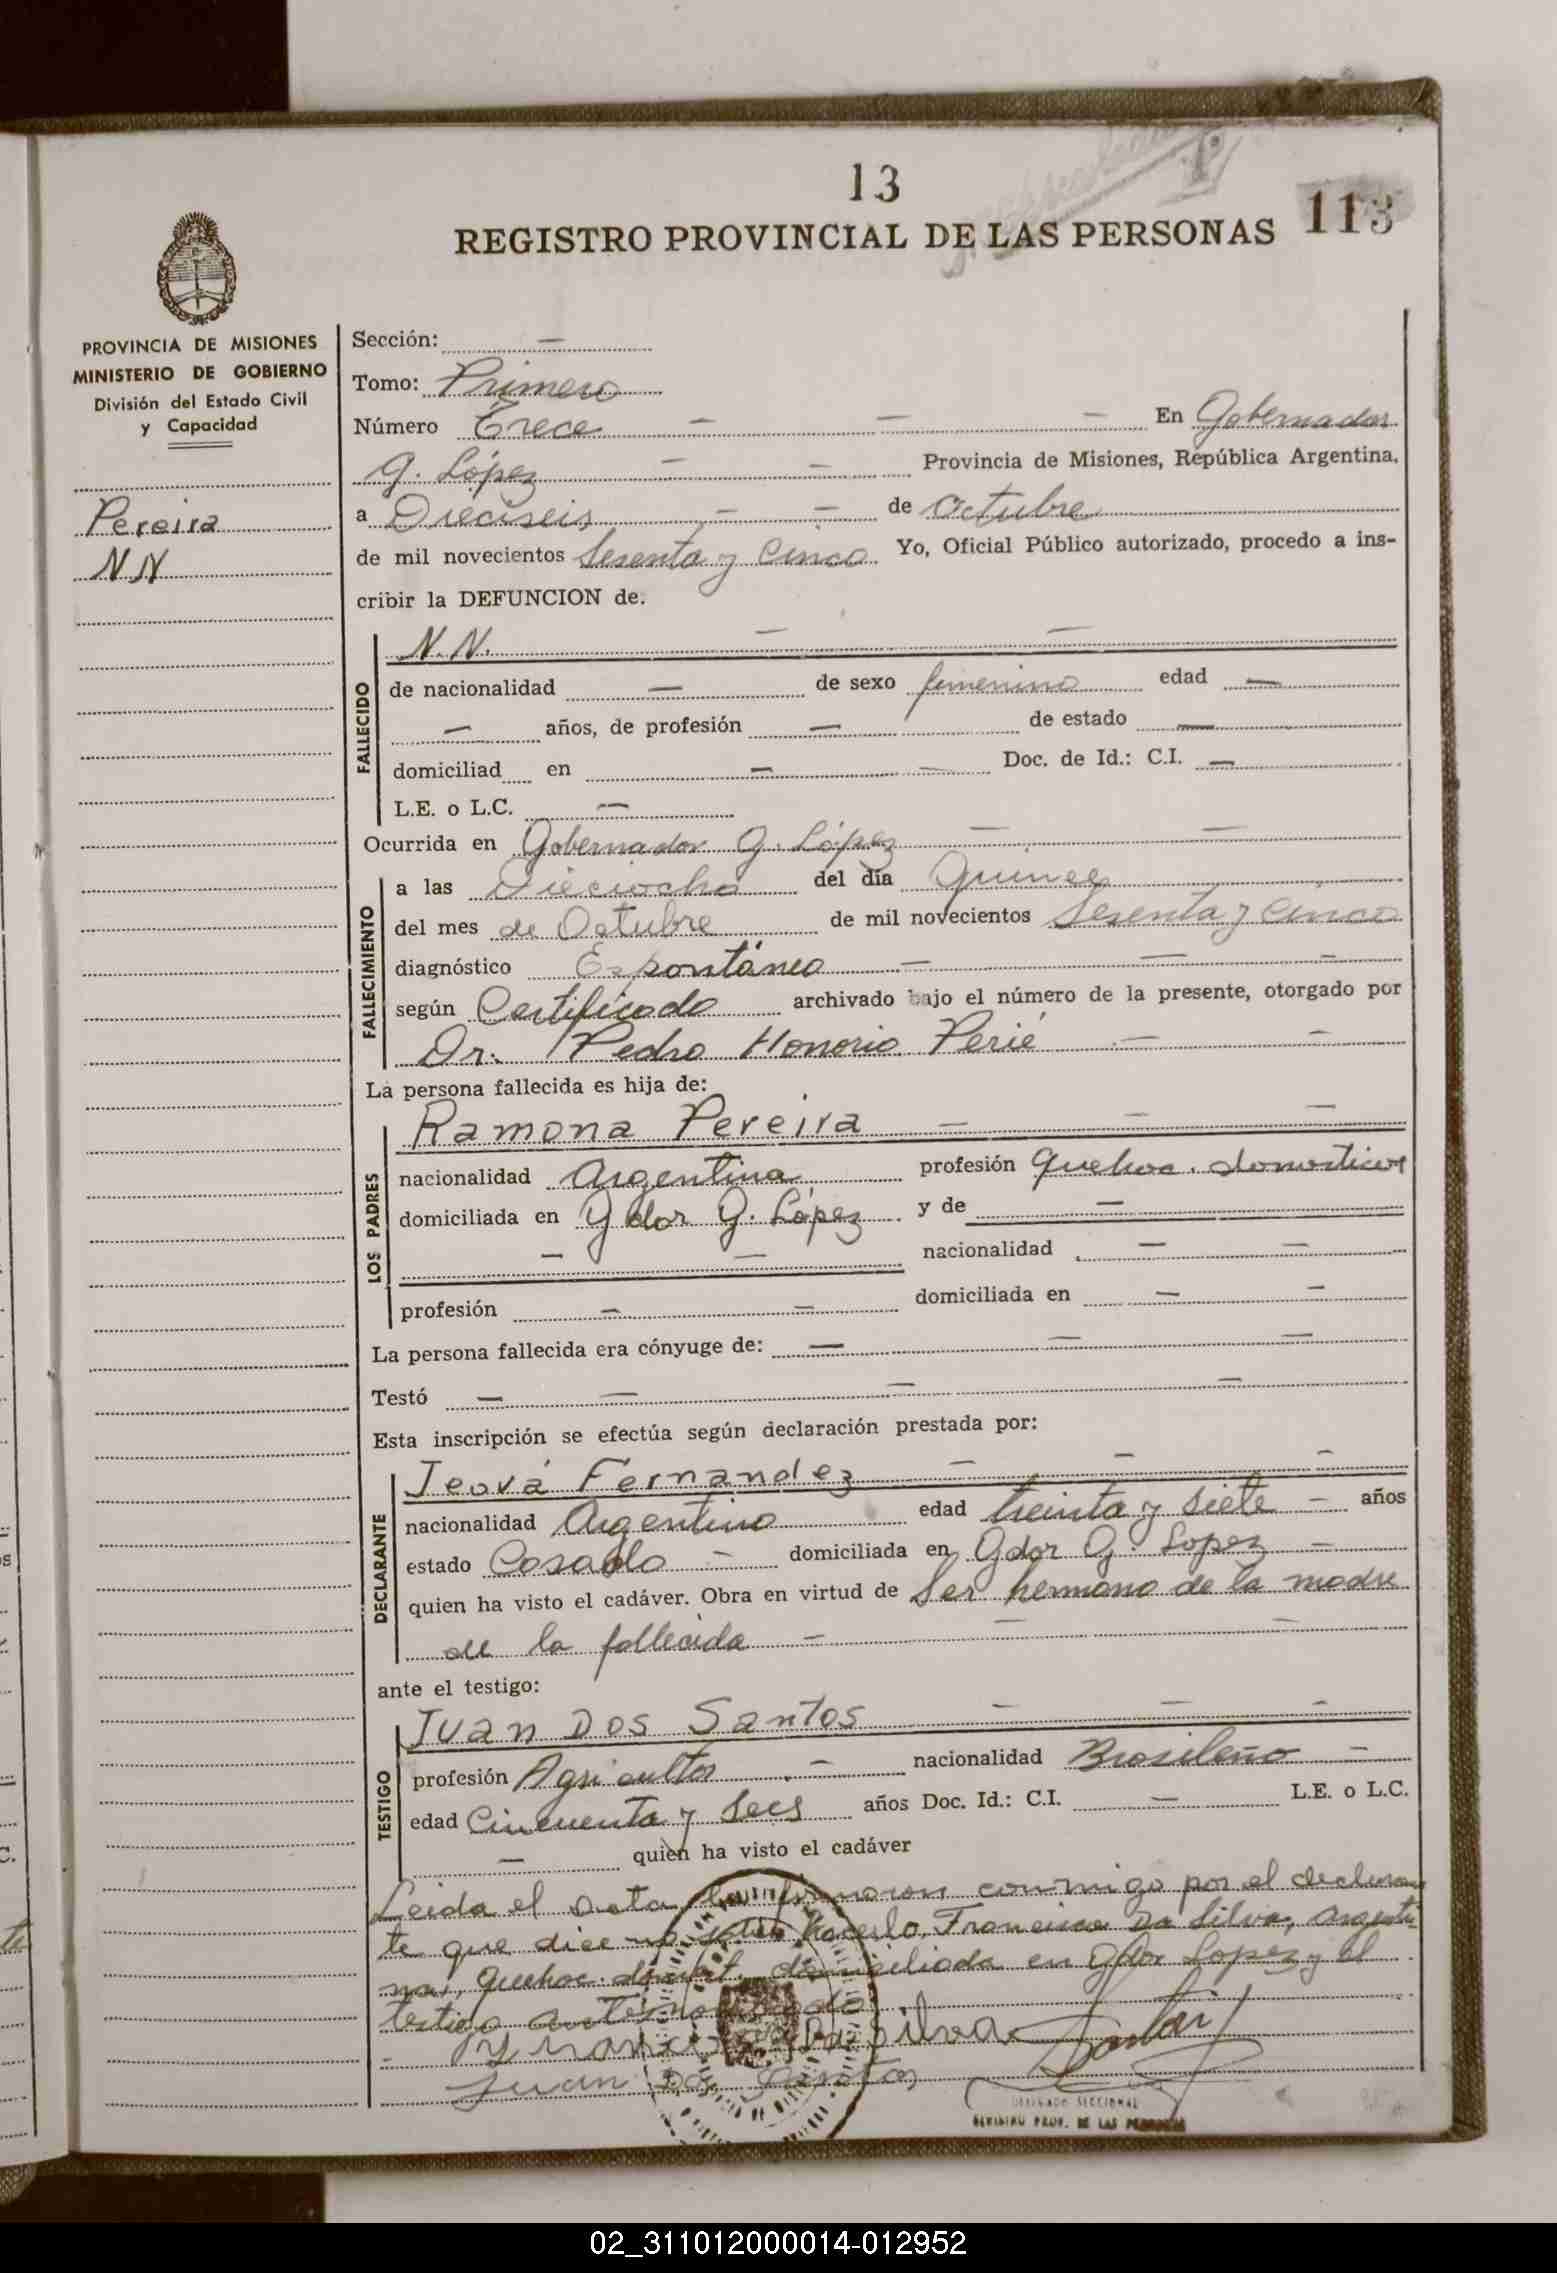 13
REGISTRO PROVINCIAL DE LAS PERSONAS 113
PROVINCIA DE MISIONES
MINISTERIO DE GOBIERNO
División del Estado Civil
y Capacidad
Pereira
N N
Sección: —
Tomo: Primero
Número Trece — — — En Gobernador
G. López — — Provincia de Misiones, República Argentina,
a Dieciseis — — de Octubre
de mil novecientos Sesenta y Cinco Yo, Oficial Público autorizado, procedo a ins-
cribir la DEFUNCION de.
FALLECIDO
N. N. — —
de nacionalidad — de sexo femenino edad —
— años, de profesión — de estado —
domiciliad en — — Doc. de Id.: C.I. —
L.E. o L.C. —
Ocurrida en Gobernador G. López — —
FALLECIMIENTO
a las Dieciocho del día Quince
del mes de Octubre de mil novecientos Sesenta y Cinco
diagnóstico Espontáneo — — —
según Certificado archivado bajo el número de la presente, otorgado por
Dr. Pedro Honorio Perié — —
La persona fallecida es hija de:
LOS PADRES
Ramona Pereira — — —
nacionalidad Argentina profesión Quehac. domesticos
domiciliada en Gdor G. López y de —
— — nacionalidad — —
profesión — — domiciliada en — —
La persona fallecida era cónyuge de: — — —
Testó — — — —
Esta inscripción se efectúa según declaración prestada por:
DECLARANTE
Jeová Fernandez — — —
nacionalidad Argentino edad treinta y siete — años
estado Casado — domiciliada en Gdor G. Lopez —
quien ha visto el cadáver. Obra en virtud de Ser hermano de la madre
de la fallecida — — —
ante el testigo:
TESTIGO
Juan Dos Santos — — —
profesión Agricultor — nacionalidad Brasileño —
edad Cincuenta y Seis años Doc. Id.: C.I. — L.E. o L.C.
— quien ha visto el cadáver
Leida el acta, la firmaron conmigo por el declaran
te que dice no saber hacerlo, Francisca Da Silva, Argenti
na, Quehac. domest. domiciliada en Gdor Lopez y el
testigo antes nombrado
Francisca Da Silva
Juan Dos Santos
DELEGADO SECCIONAL
REGISTRO PROV. DE LAS PERSONAS
02_311012000014-012952